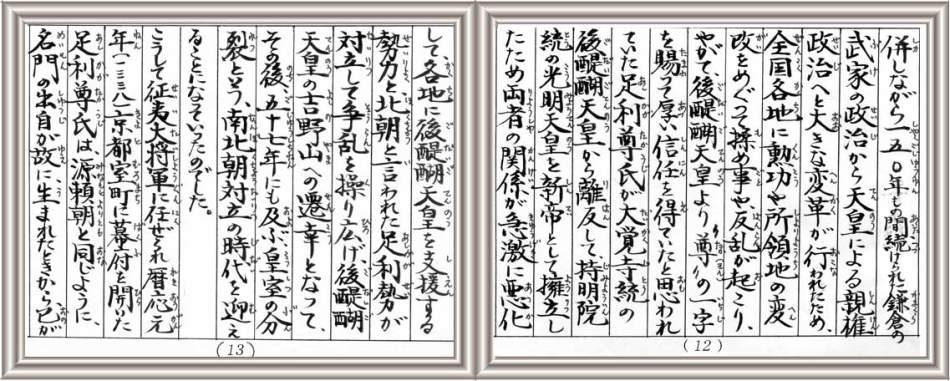 併しながら一五〇年もの間続けられた鎌倉の
武家の政治から天皇による親権
政治へと大きな変革が行われたため、
全国各地に勲功や所領地の変
改をめぐって揉め事や反乱が起こり、
やがて、後醍醐天皇より「尊」の一字
を賜って厚い信任を得ていたと思われ
ていた足利尊氏が大覚寺統の
後醍醐天皇から離反して持明院
統の光明天皇を新帝として擁立し
たため両者の関係が急激に悪化
(12)
して、各地に後醍醐天皇を支援する
勢力と、北朝と言われた足利勢が
対立して争乱を操り広げ、後醍醐
天皇の吉野山への遷幸となって、
その後、五十七年にも及ぶ皇室の分
裂という、南北朝対立の時代を迎え
ることになっていったのでした。
こうして征夷大将軍に任ぜられ暦応元
年(一三三八)京都室町に幕府を開いた
足利尊氏は、源頼朝と同じように、
名門の出自が故に生まれたときから、己が
(13)